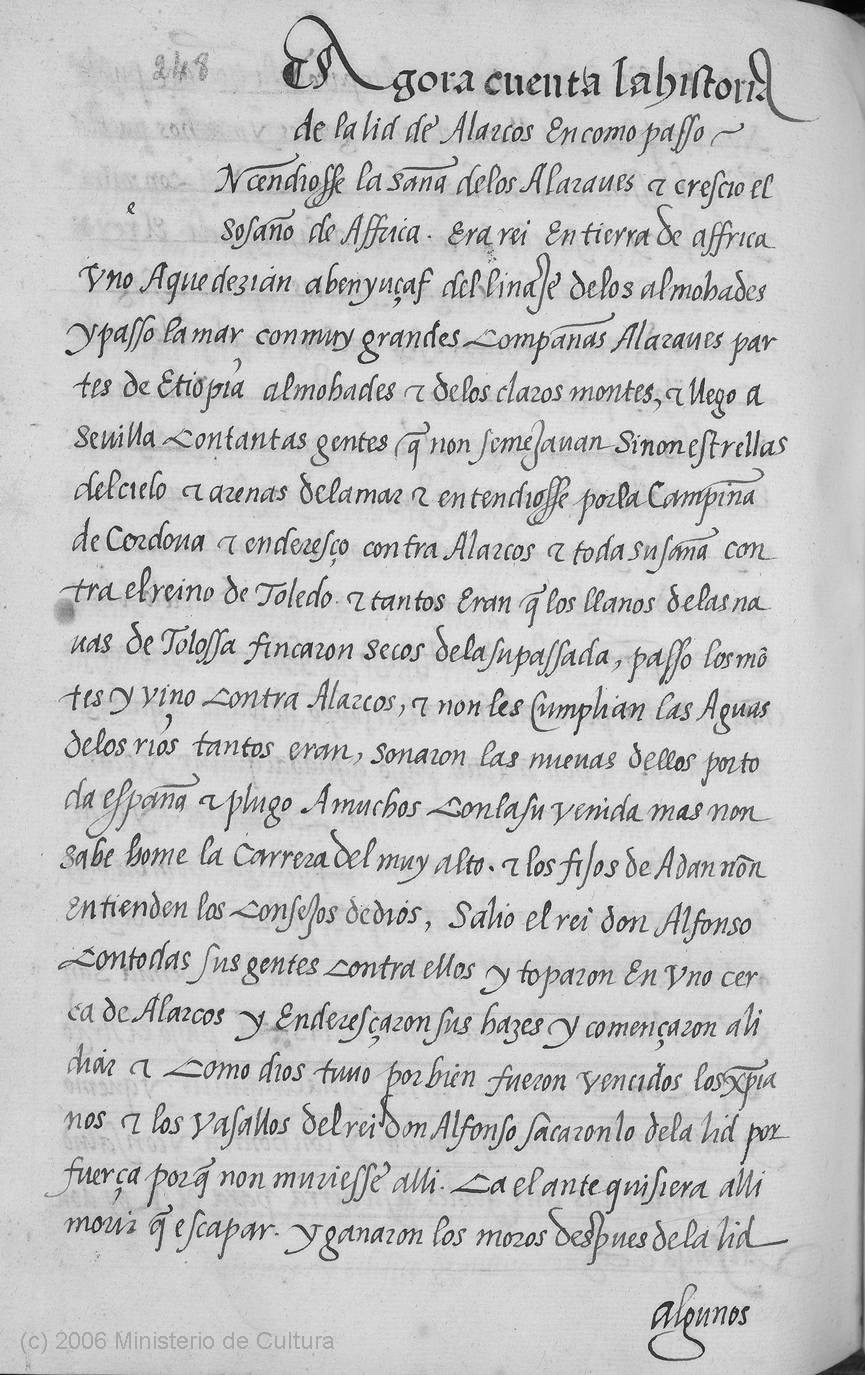 248
Agora cuenta la historia
de la lid de Alarcos En como passo
Ncendiosse la saña de los Alaraues τ crescio el
e
sosaño de Affrica. Era rei En tierra de affrica
vno A que dezian abenyuçaf del linaje de los almohades
y passo la mar con muy grandes Compañas Alaraues par
tes de Etiopia almohades τ de los claros montes, τ llego a
Sevilla Con tantas gentes q̃ non semejauan Sinon estrellas
del cielo τ arenas de la mar τ entendiosse por la Campiña
de Cordoua τ enderesço contra Alarcos τ toda su saña con
tra el reino de Toledo. τ tantos Eran q̃ los llanos de las na
uas de Tolossa fincaron secos de la su passada, passo los mõ
tes y vino Contra Alarcos, τ non les Cumplian las Aguas
de los rios tantos eran, sonaron las nuevas dellos por to
da españa τ plugo A muchos Con la su venida mas non
sabe home la Carrera del muy alto. τ los fijos de Adan nõn
entienden los Consejos de dios, Salio el rei don Alfonso
Con todas sus gentes Contra ellos y toparon En vno cer
ca de Alarcos y Enderesçaron sus hazes y començaron a li
diar τ Como dios tuuo por bien fueron vencidos los xp̃ia
nos τ los vasallos del rei don Alfonso sacaronlo de la lid por
fuerça porq̃ non muriesse alli. Ca el ante quisiera alli
morir q̃ escapar. y ganaron los moros despues de la lid
algunos
(c) 2006 Ministerio de Cultura